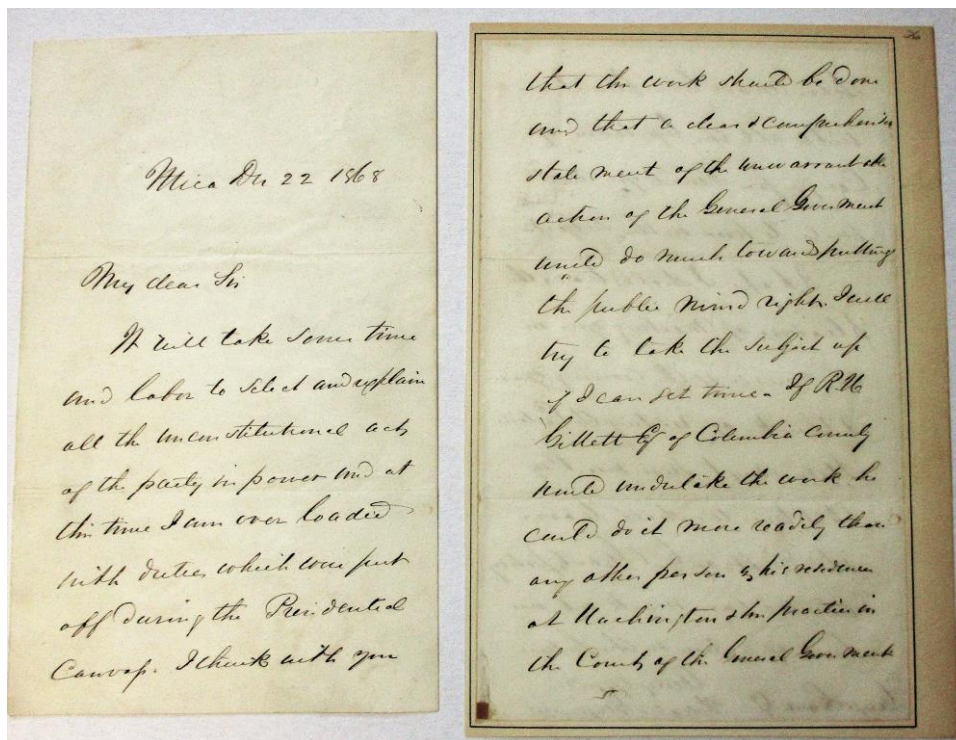 Utica Dec 22 1868
My dear Sir
It will take some time
and labor to select and explain
all the unconstitutional acts
of the party in power and at
this time I am over loaded
with duties which were put
off during the Presidential
Canvass. I think with you
that the work should be done
and that a clear & comprehensive
statement of the unwarrantable
action of the General Government
would do much toward putting
the public mind right. I will
try to take the subject up
if I can get time. If R H
Gillett Esq of Columbia County
would undertake the work he
could do it more readily than
any other person by his residence
at Washington & his practice in
the Courts of the General Government